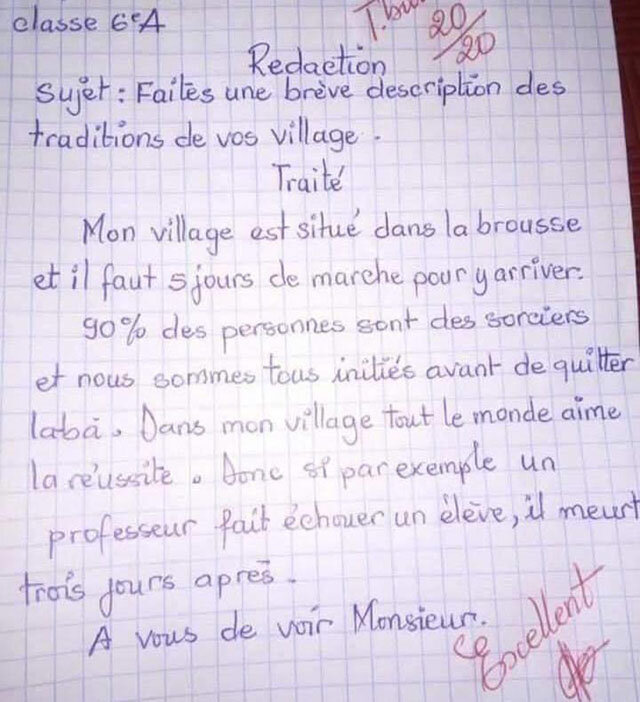 classe 6eA
T.bu
20/20
Redaction
Sujet : Faites une brève description des
traditions de vos village.
Traité
Mon village est situé dans la brousse
et il faut 5 jours de marche pour y arriver.
90% des personnes sont des sorciers
et nous sommes tous initiés avant de quitter
labà. Dans mon village tout le monde aime
la réussite. Donc si par exemple un
professeur fait échouer un élève, il meurt
trois jours après.
A vous de voir Monsieur.
Excellent